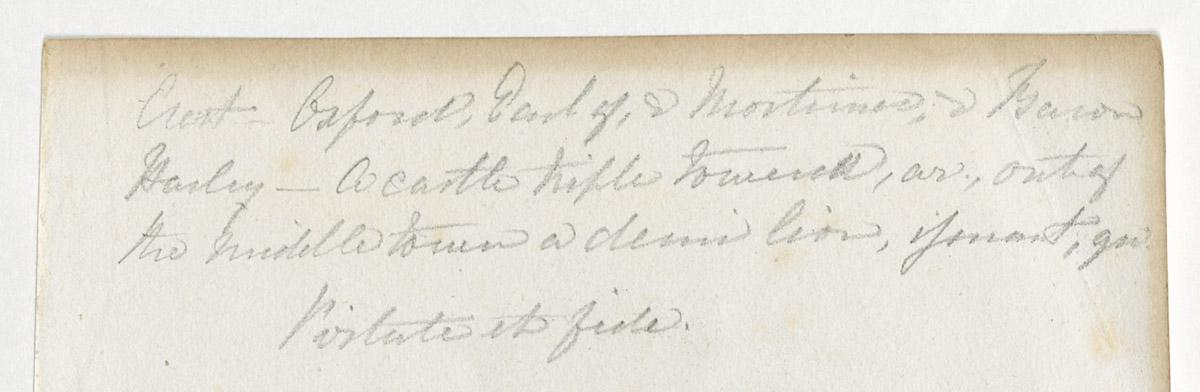 Crest – Oxford, Earl of, & Mortimer, & Baron
Harley – A castle triple towered, ar., out of
the middle tower a demi lion, issuant, gu.
Virtute et fide.